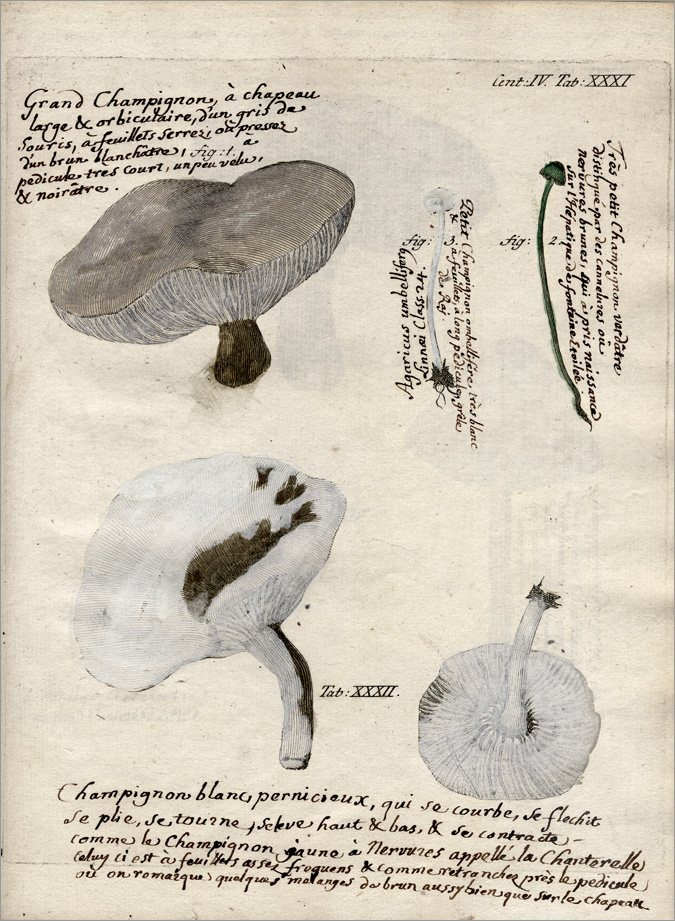 Cent: IV. Tab: XXXI
Grand Champignon, à chapeau
large & orbiculaire, d'un gris de
Souris, à feuillets serrez, où pressez
d'un brun blanchâtre, fig: 1. a
pedicule tres court, un peu velu,
& noirâtre.
fig: 3.
Petit Champignon ombellifére, très blanc
& à feuillets, à long pedicule, grêle
de Raj.
Agaricus umbellifer
Linnei Classe 1.
fig: 2.
Très petit Champignon verdâtre
distingué par des cannelures où
nervures brunes, qui a pris naissance
sur l'Hépatique de fontaine Etoilée.
Tab: XXXII.
Champignon blanc, pernicieux, qui se courbe, se flechit
se plie, se tourne, seleve haut & bas, & se contracte -
comme le Champignon jaune à Nervures appellé la Chanterelle
Celuy ci est à feuillets assez frequens & comme retranchez près le pedicule
où on romarque quelques mélanges de brun aussy bien que sur le chapeau